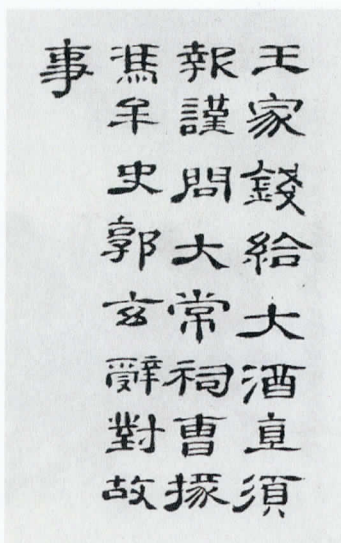 王家錢給大酒直須
報謹問大常祠曹掾
馮牟史郭玄辭對故
事